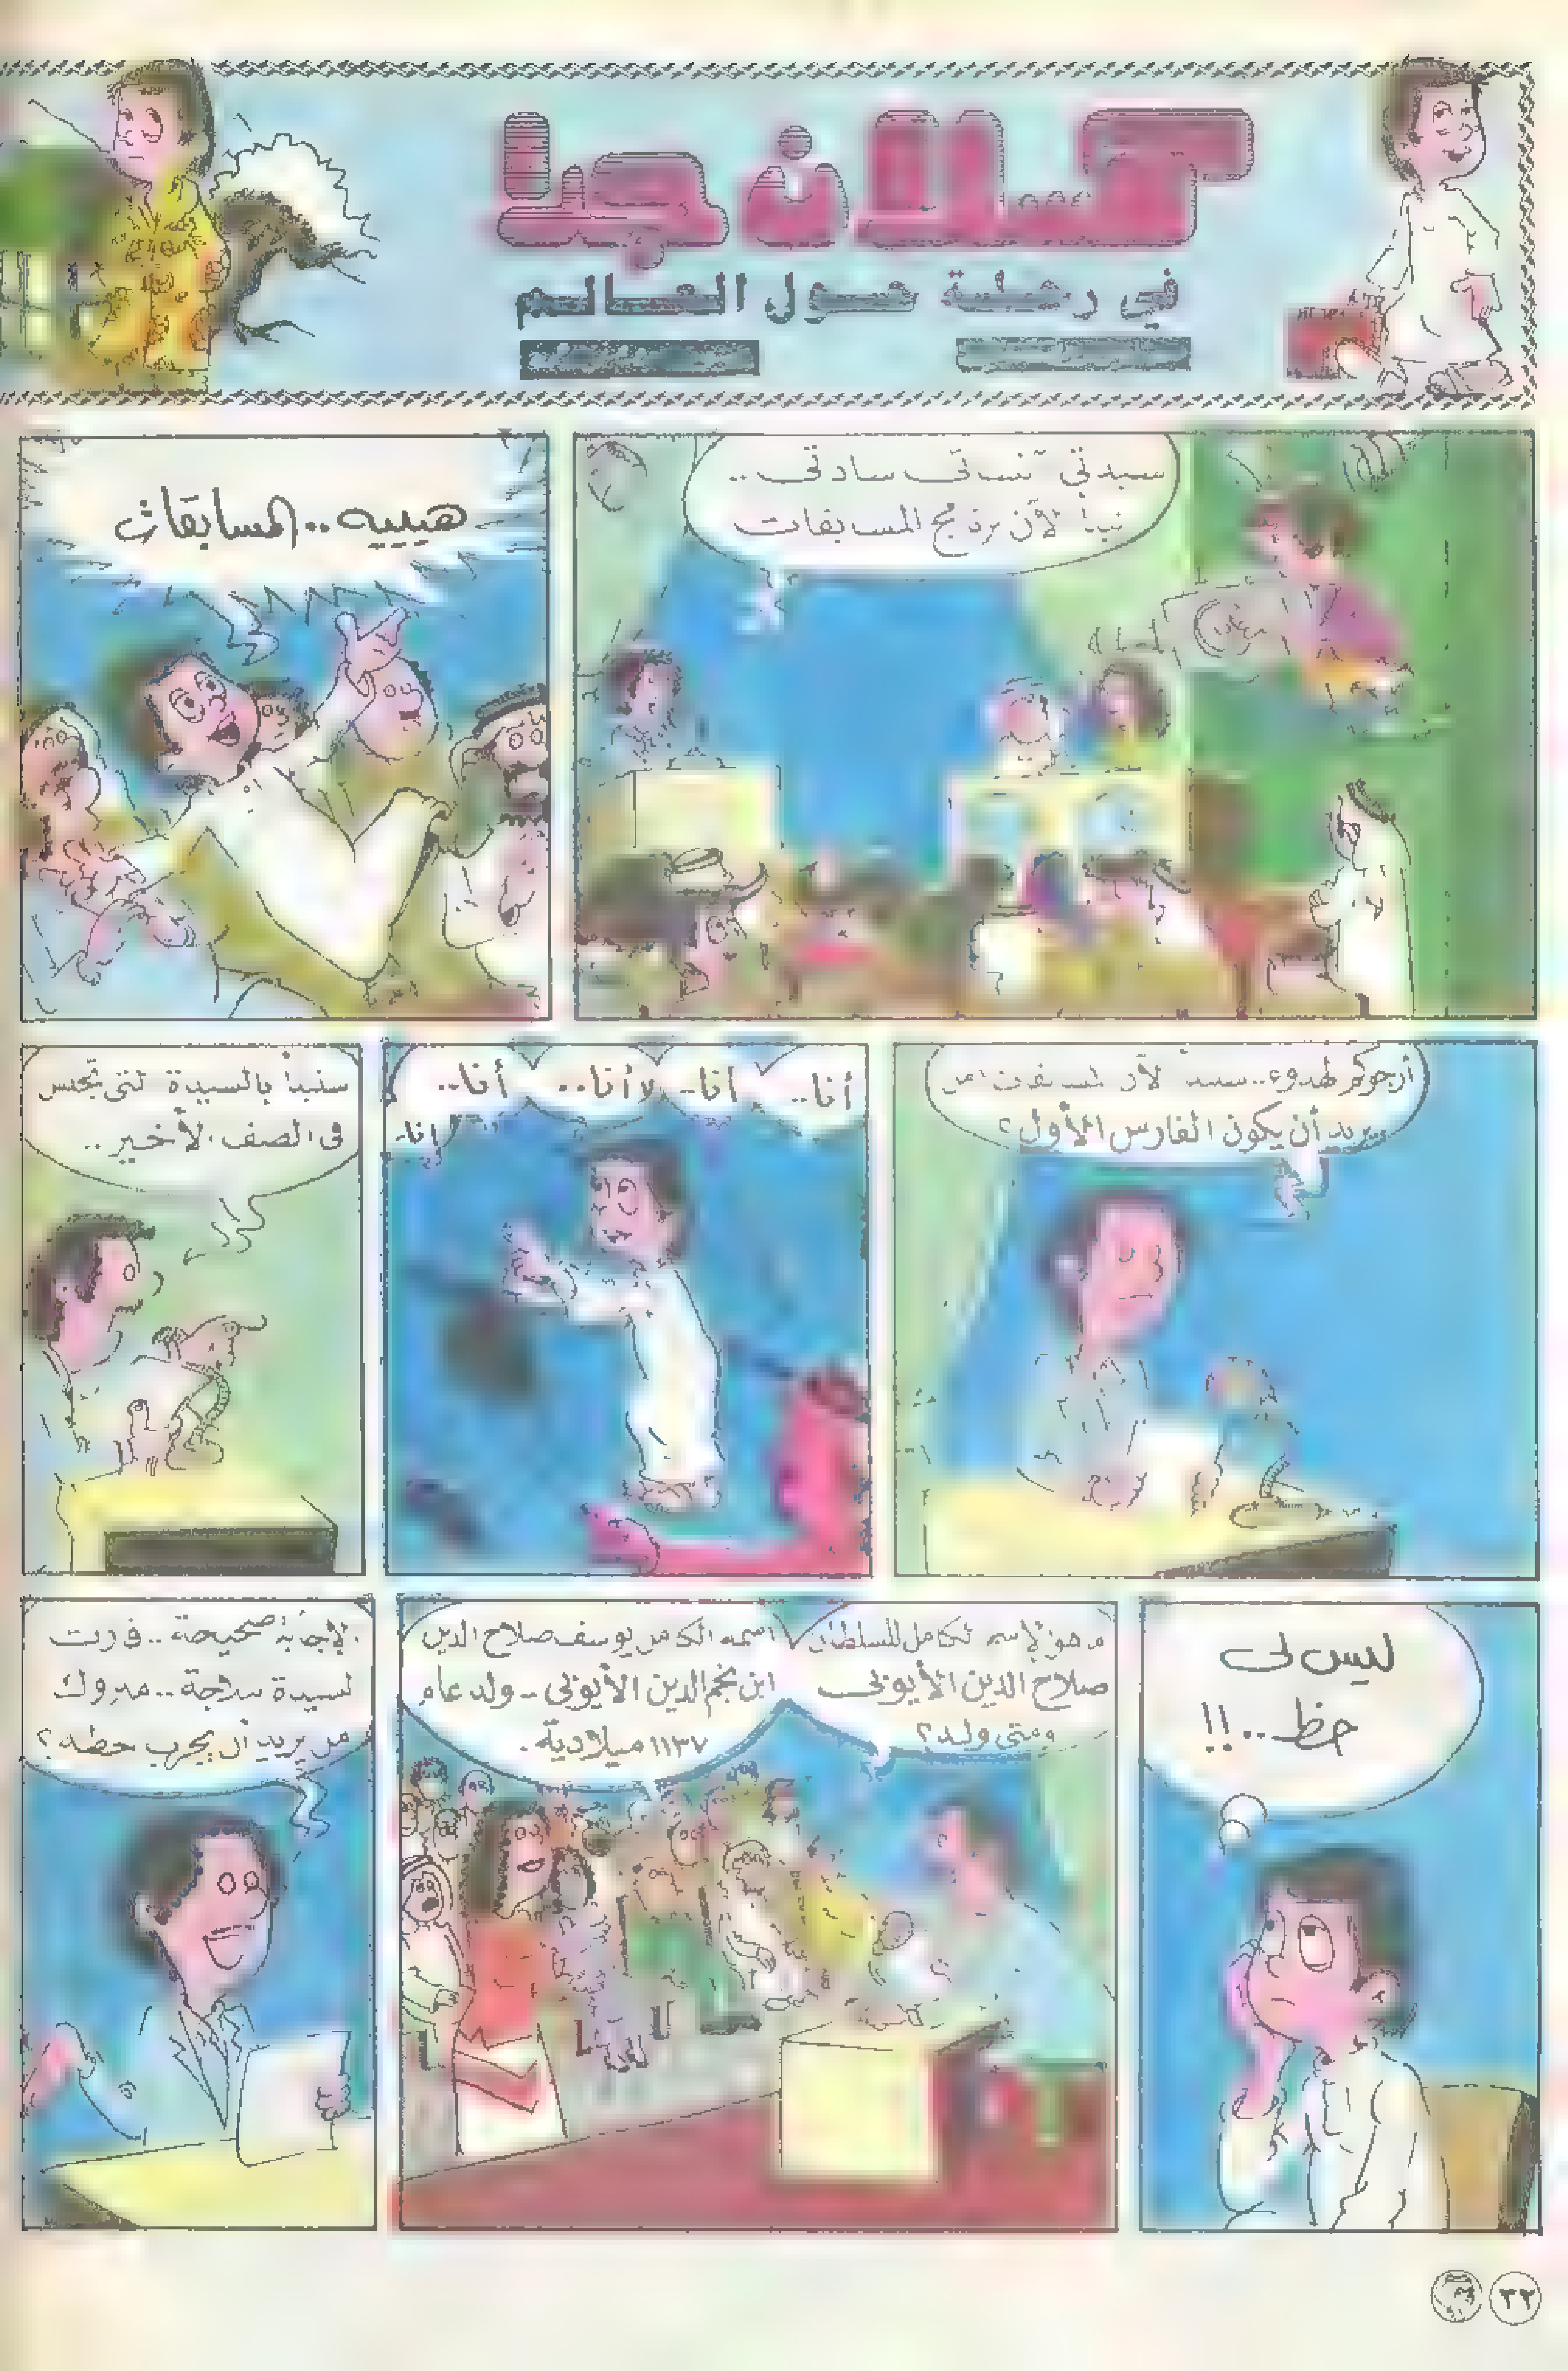 كسلان جدا
في رحلة حول العالم
سيدتي آنستي سادتي ..
نبدأ الآن برنامج المسابقات
هيييه .. المسابقات
أرجوكم الهدوء .. سنبدأ الآن المسابقات من
يريد أن يكون الفارس الأول؟
أنا .. أنا - لا أنا .. أنا ..
أنا -
سنبدأ بالسيدة التى تجلس
فى الصف الأخير ..
ليس لى
حظ .. !!
ما هو الإسم الكامل للسلطان
صلاح الدين الأيوبى
ومتى ولد؟
اسمه الكامل يوسف صلاح الدين
ابن نجم الدين الأيوبى - ولد عام
١١٣٧ ميلادية .
الإجابة صحيحة .. فزت
السيدة بـ .. مبروك
من يريد أن يجرب حظه؟
٣٢